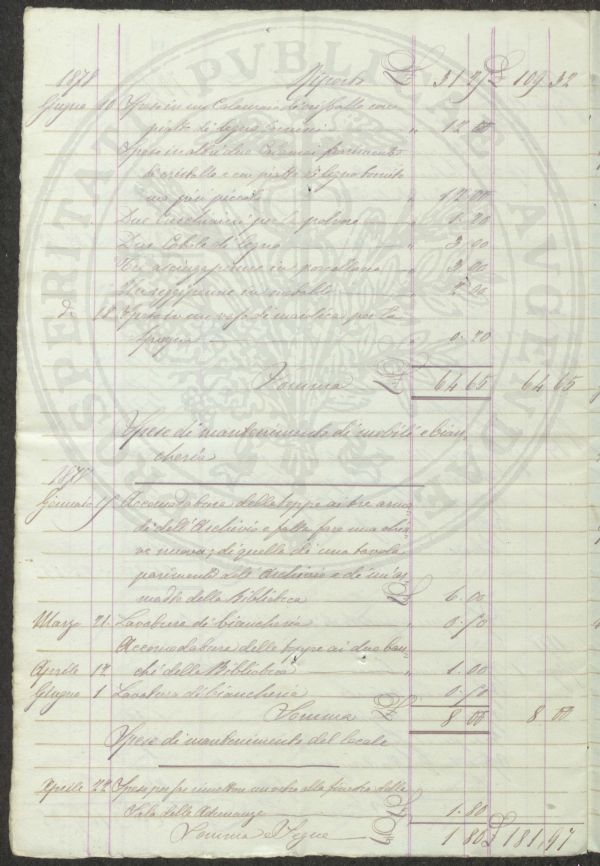 PROSPERITATI PUBLICAE AUGENDAE
1878 Riporto £ 31 25 £ 109 32
Giugno 10 Speso in un Calamaio di cristallo con
piatto di legno " 12 00
Speso in altri due Calamai
di cristallo e con piatto di legno
ma più piccoli " 12 00
Due per la polvere " 1. 20
Due di legno " 3. 00
Tre asciugapenne in porcellana " 3. 00
in metallo "
d.° 18 Speso in un vaso di maiolica per la
spugna " 0. 20
Somma £ 64 65 64 65
Spese di mantenimento di mobili e bian,,
cheria
187
Gennaio 15 Accomodatura delle toppe ai tre arma,,
di dell'Archivio e fatta fare una chia,,
ve nuova; di quella di una tavola
parimente dell'Archivio e di un'ar,,
madio della Biblioteca £ 6. 00
Marzo 21. Lavatura di biancheria " 0. 50
Accomodatura delle toppe ai due ban,,
chi della Biblioteca " 1. 00
Aprile 12
Giugno 1 Lavatura di biancheria 0. 50
Somma £ 8 00 8 00
Spese di mantenimento del locale
Aprile 22 Spese per far rimettere un vetro alla finestra della
Sala delle Adunanze £ 1. 80
Somma e Segue £ 1 80 £ 181,97